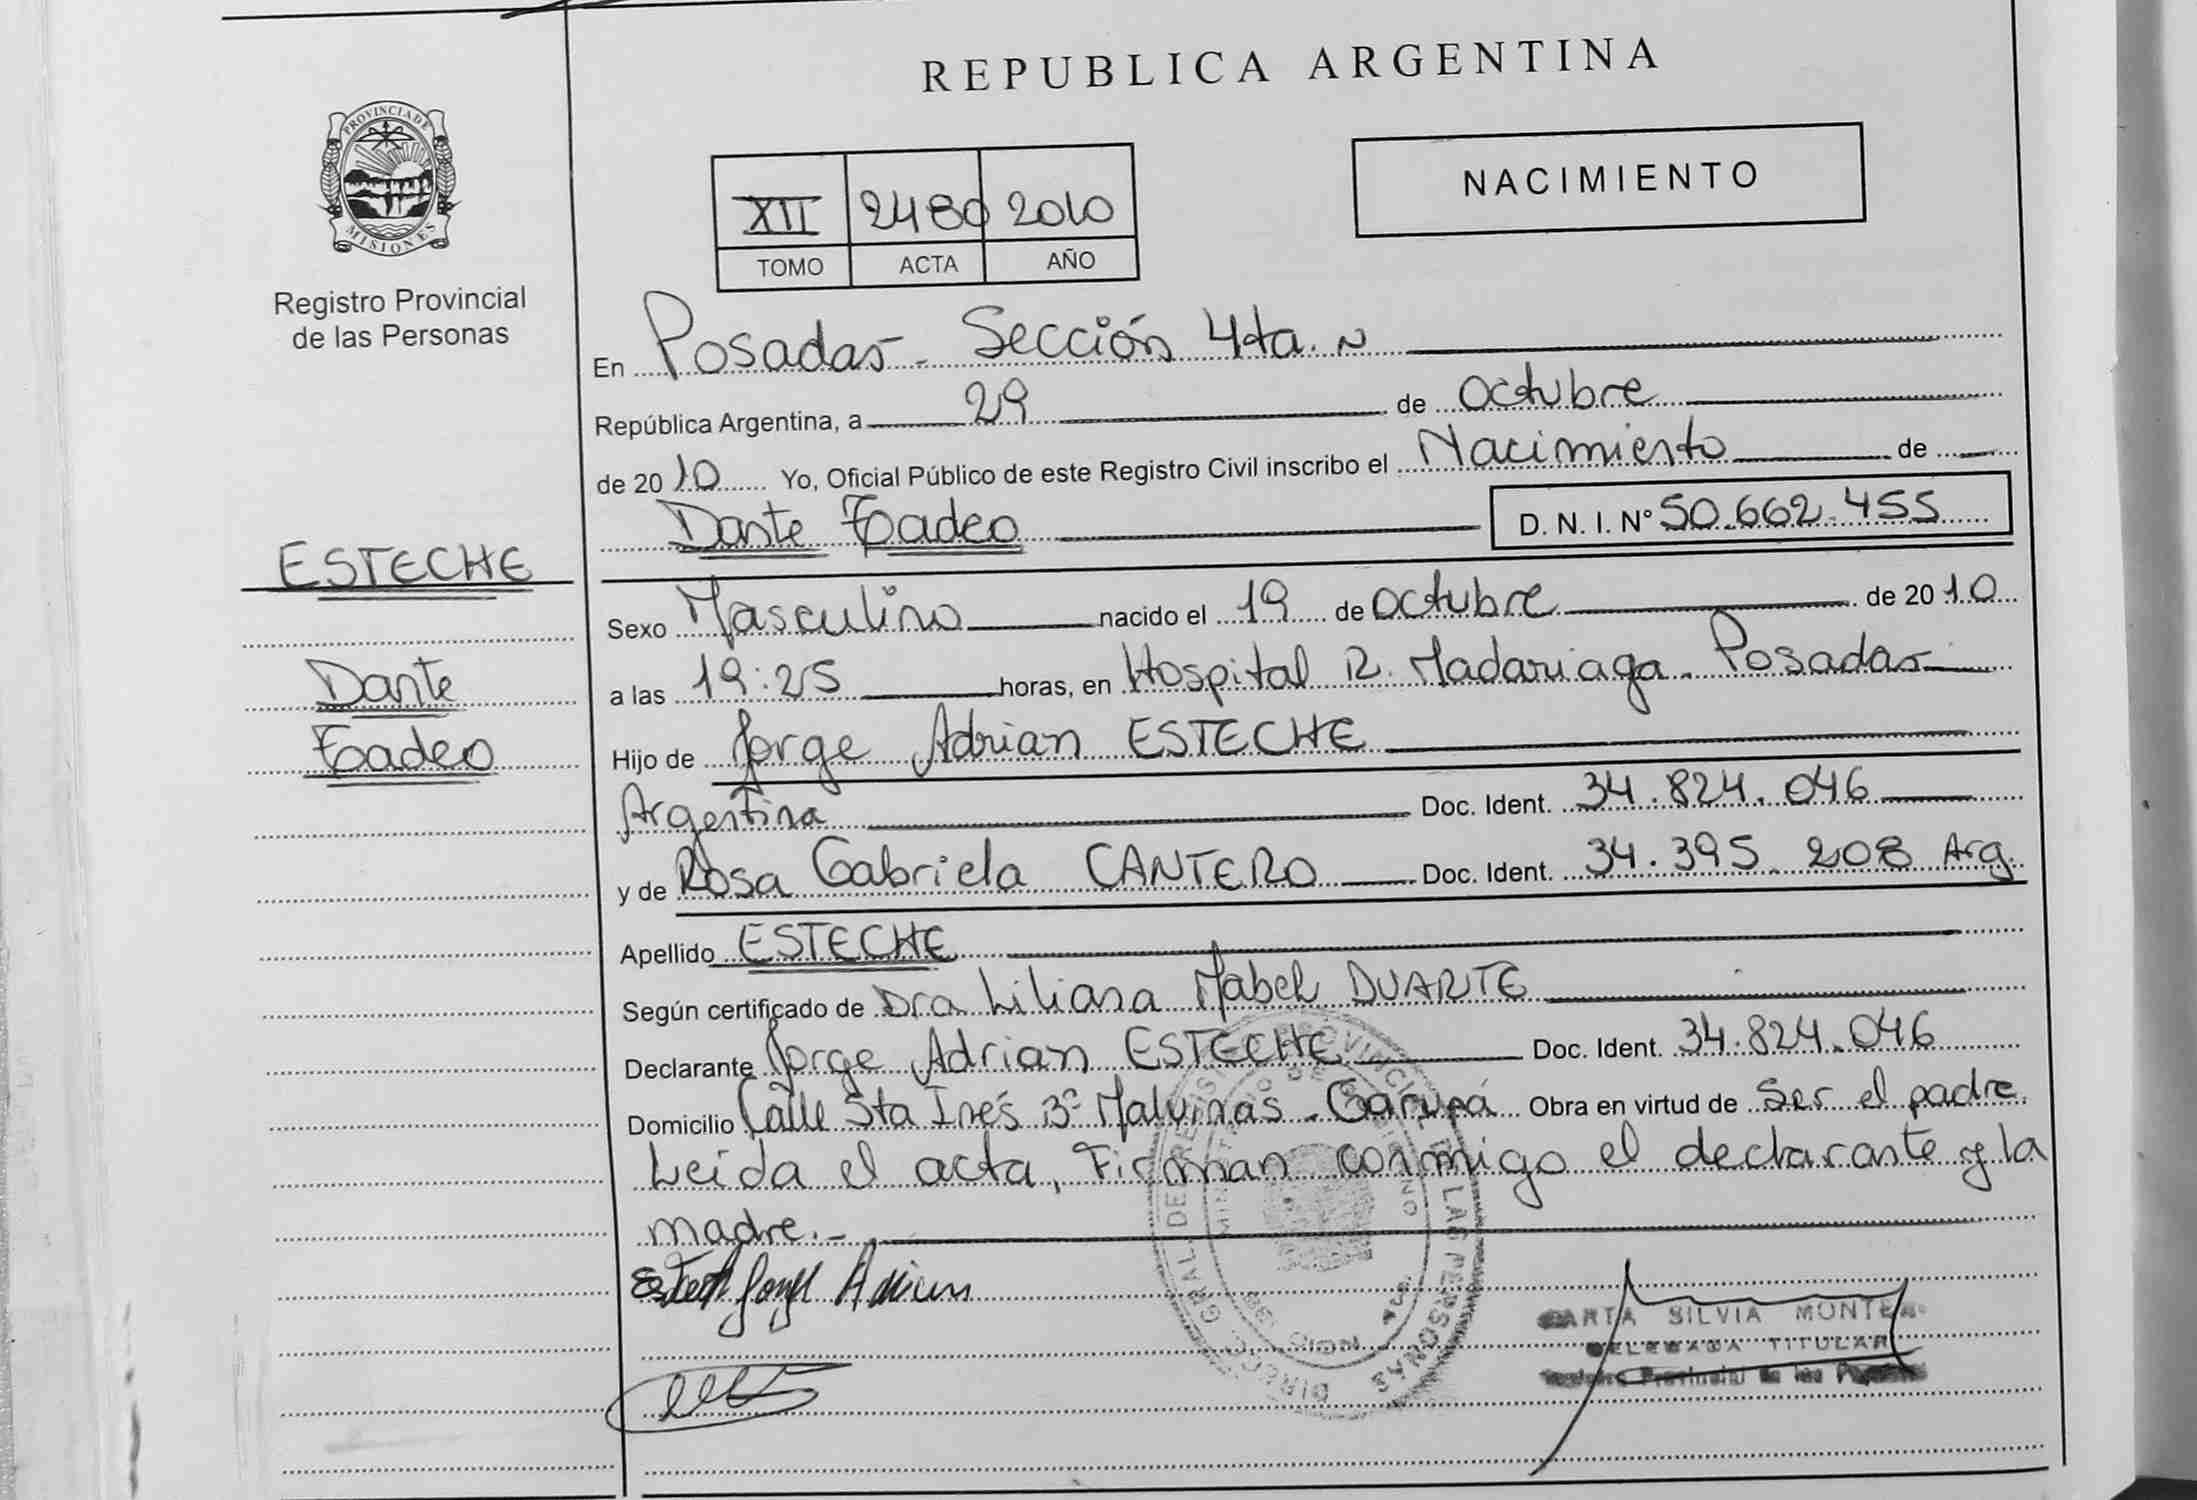 REPUBLICA ARGENTINA
PROVINCIA DE MISIONES
Registro Provincial
de las Personas
XII 2480 2010
TOMO ACTA AÑO
NACIMIENTO
En Posadas - Sección 4ta. N
República Argentina, a 29 de octubre
de 2010 Yo, Oficial Público de este Registro Civil inscribo el Nacimiento de
Dante Tadeo D. N. I. Nº 50.662.455
ESTECHE
Dante
Tadeo
Sexo Masculino nacido el 19 de octubre de 2010
a las 19:25 horas, en Hospital R. Madariaga. Posadas
Hijo de Jorge Adrian ESTECHE
Argentina Doc. Ident. 34.824.046
y de Rosa Gabriela CANTERO Doc. Ident. 34.395.208 Arg.
Apellido ESTECHE
Según certificado de Dra Liliana Mabel DUARTE
Declarante Jorge Adrian ESTECHE Doc. Ident. 34.824.046
Domicilio Calle Sta Inés Bº Malvinas - Garupá Obra en virtud de ser el padre.
Leída el acta, Firman conmigo el declarante y la
madre.-
Jorge Adrian
SILVIA
TITULAR
Provincial de las
DIRECC. GRAL. DE REGISTRO PROVINCIAL DE LAS PERSONAS